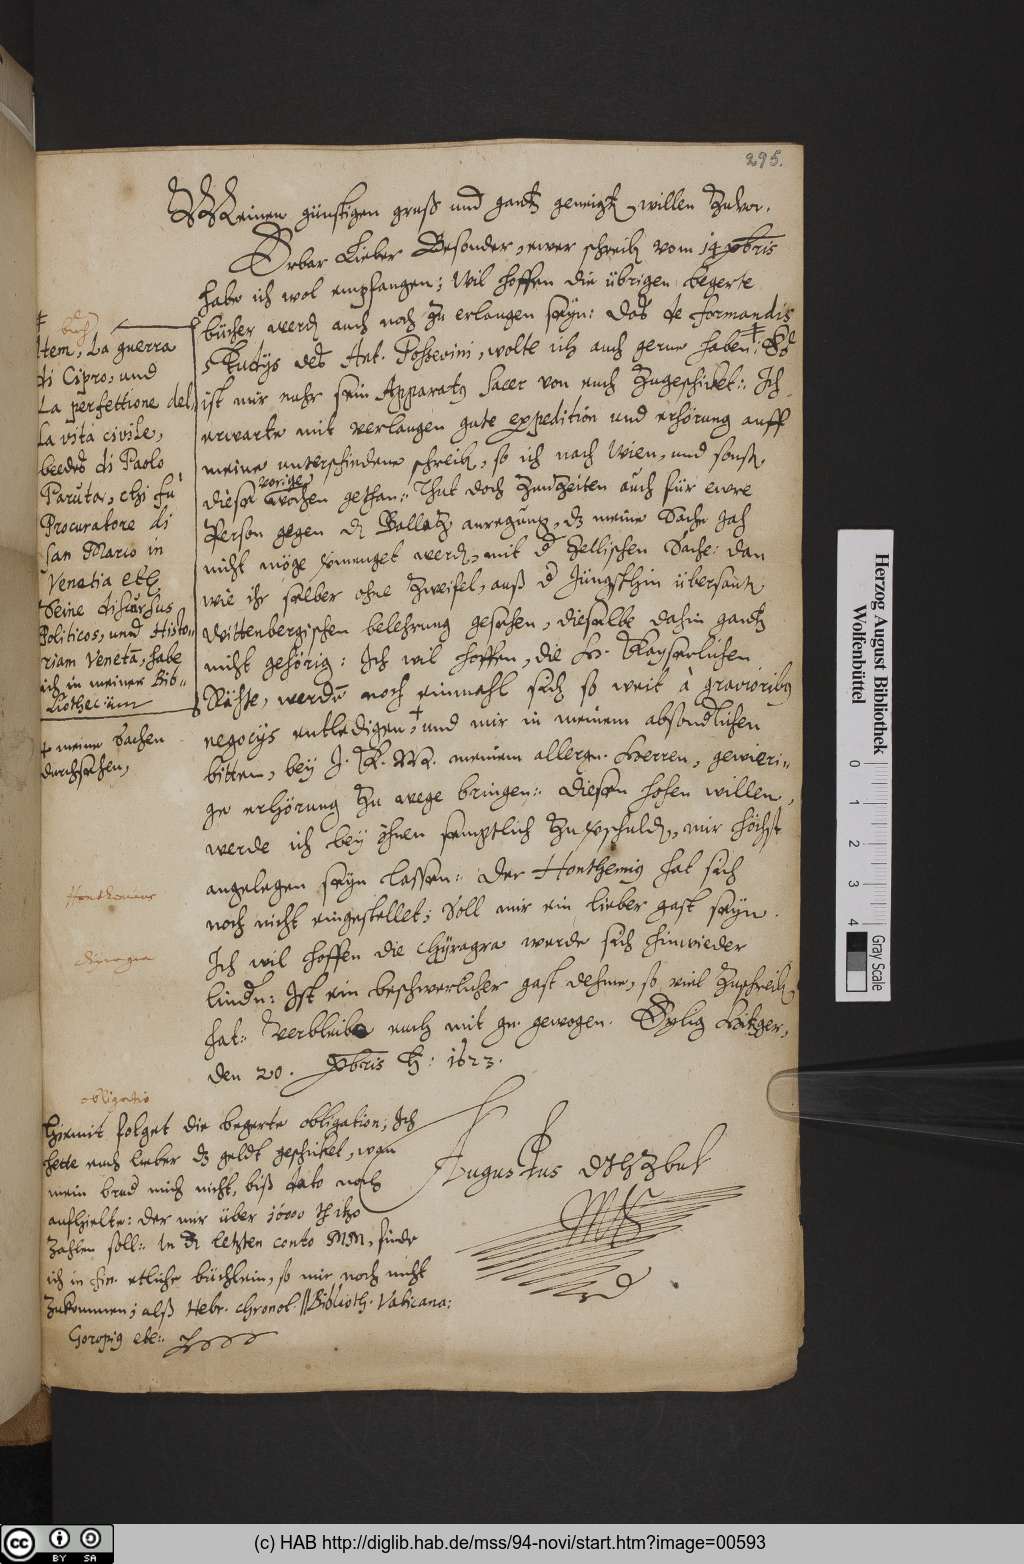 295.
Meinen günstigen gruß und gantz geneigtē willen Zuvor.
Erbar Lieber Besonder, ewer schreibē vom 14 Xbris
habe ich wol empfangen; Wil hoffen die übrigen begerte
bücher werdē auch noch zu erlangen seyn: Das de formandis
studys des Ant. Possevini, wolte ich auch gerne haben; Es
ist mir nuhr sein Apparatus Sacer von euch Zugeschicket:. Ich
erwarte mit verlangen gute expedition und erhörung auff
meine unterschiedene schreibē, so ich nach Wien, und sonst
vorige
diese Wochen gethan:. Thut doch Zun Zeiten auch für ewre
Person gegen dē Ballatz anregung, dz meine Sache jah
nicht möge vermenget werdē, mit der Zellischen Sache: dan
wie ihr selber ohne Zweifel, auß der Jüngsthin übersantē
Wittenbergischen belehrung gesehen, dieselbe dahin gantz
nicht gehörig: Ich wil hoffen, die H. Kayserlichen
Rähte, werdē noch einmahl sich so weit à gravioribus
negocys entledigen, und mir in meinem absonderlichen
bitten, bey J. K. M. meinem allergn. Herren, gewieri-
ge erhörung zu wege bringen:. Diesen hohen willen,
werde ich bey ihnen semptlich Zu verschuldē, mir höchst
angelegen seyn lassen:. Der Honthemius hat sich
noch nicht eingestellet; Soll mir ein lieber gast seyn.
Ich wil hoffen die Chyragra werde sich hinwieder
lindern: Ist ein beschwerlicher gast dehme, so viel Zuschreibē
hat:. Verbleibe euch mit gn. gewogen. Eylig Hitzger,
den 20. Xbris Ao: 1623.
Augustus DHZBuL
Mpp
buch
Item, La guerra
di Cipro, und
La perfettione del
la vita civile,
beedes di Paolo
Paruta, chi fù
Procuratore di
San Marco in
Venetia etc.
Seine discursus
Politicos, und Histo-
riam Venetā, habe
ich in meiner Bib-
liothecam
+ meine Sachen
durchsehen,
Honthemius
Chiragra
obligatio
Hiemit folget die begerte obligation; Ich
hette euch lieber dz geldt geschicket, wan
mein brud mich nicht, biß dato noch
aufhielte: der mir über 10000 th itzo
zahlen soll:. In dē letzten conto MM, finde
ich in fin. etliche büchlein, so mir noch nicht
Zukommen; alß Hebr. chronol. || Biblioth. Vaticana:
Goropius etc:.
Herzog August Bibliothek
Wolfenbüttel
0 1 2 3 4
Gray Scale
cc BY SA
(c) HAB http://diglib.hab.de/mss/94-novi/start.htm?image=00593